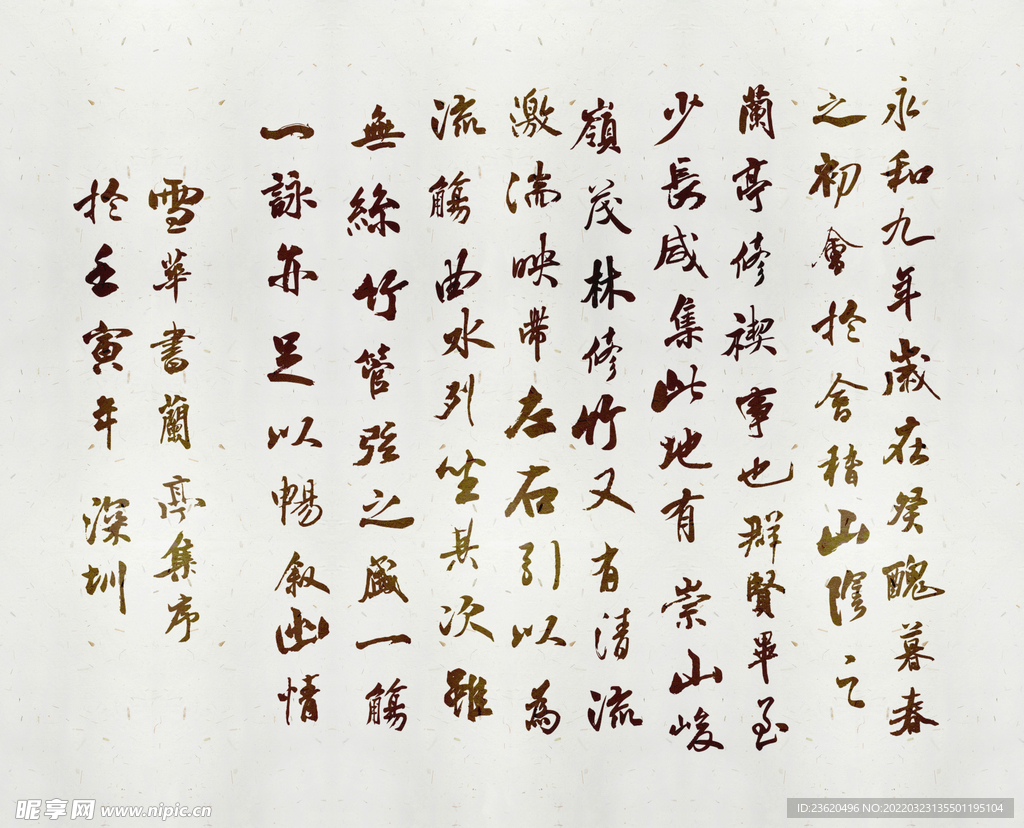 永和九年歲在癸醜暮春
之初會於會稽山陰之
蘭亭修禊事也群賢畢至
少長咸集此地有崇山峻
嶺茂林修竹又有清流
激湍映帶左右引以為
流觴曲水列坐其次雖
無絲竹管弦之盛一觴
一詠亦足以暢敘幽情
雪華書蘭亭集序
於壬寅年深圳
昵享网 www.nipic.cn
ID:23620496 NO:20220323135501195104